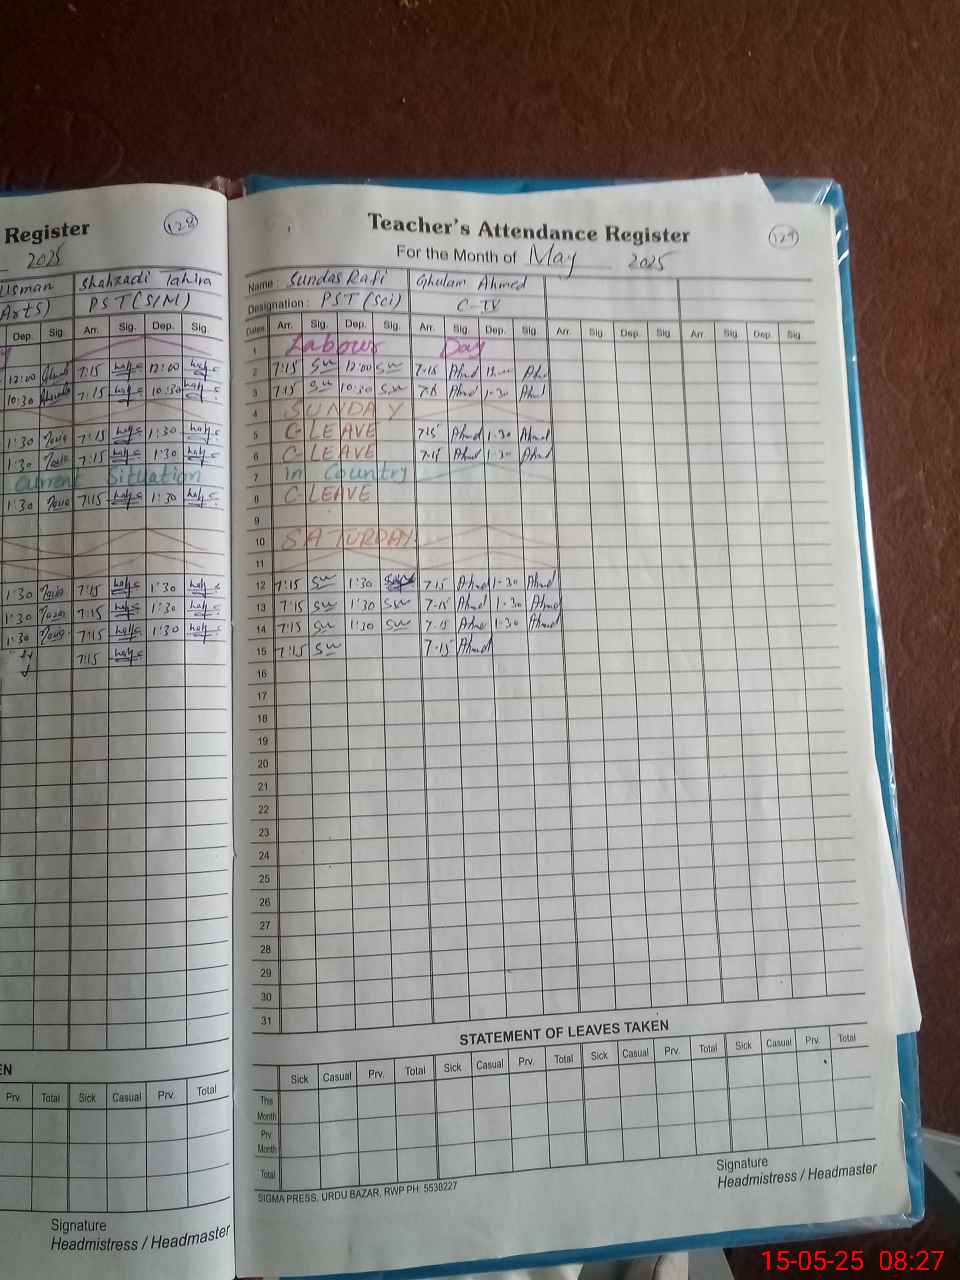 Register
128
2025
Usman Shahzadi Tahira
Arts) PST (S/M)
Dep. Sig. Arr. Sig. Dep. Sig.
12:00 7:15 12:00
10:30 7:15 10:30
1:30 7:15 1:30
1:30 7:15 1:30
Current Situation
1:30 7:15 1:30
1:30 7:15 1:30
1:30 7:15 1:30
1:30 7:15 1:30
7:15
EN
Prv. Total Sick Casual Prv. Total
Signature
Headmistress / Headmaster
Teacher's Attendance Register
129
For the Month of May 2025
Name : Sundas Rafi Ghulam Ahmed
Designation : PST (Sci) C-IV
Dates Arr. Sig. Dep. Sig. Arr. Sig. Dep. Sig. Arr. Sig. Dep. Sig. Arr. Sig. Dep. Sig.
1 Labour Day
2 7:15 12:00 7-15 Ahmd
3 7:15 10:30 Ahmd 1-30 Ahmd
4 SUNDAY
5 C-LEAVE 7-15 Ahmd 1-30 Ahmd
6 C-LEAVE 7-15 Ahmd 1-30 Ahmd
7 in Country
8 C-LEAVE
9
10 SATURDAY
11
12 7:15 1:30 7-15 Ahmd 1-30 Ahmd
13 7:15 1:30 7-15 Ahmd 1-30 Ahmd
14 7:15 1:30 7-15 Ahmd 1-30 Ahmd
15 7:15 7-15 Ahmd
16
17
18
19
20
21
22
23
24
25
26
27
28
29
30
31
STATEMENT OF LEAVES TAKEN
Sick Casual Prv. Total Sick Casual Prv. Total Sick Casual Prv. Total Sick Casual Prv. Total
This
Month
Prv
Month
Total
SIGMA PRESS, URDU BAZAR, RWP PH: 5538227
Signature
Headmistress / Headmaster
15-05-25 08:27